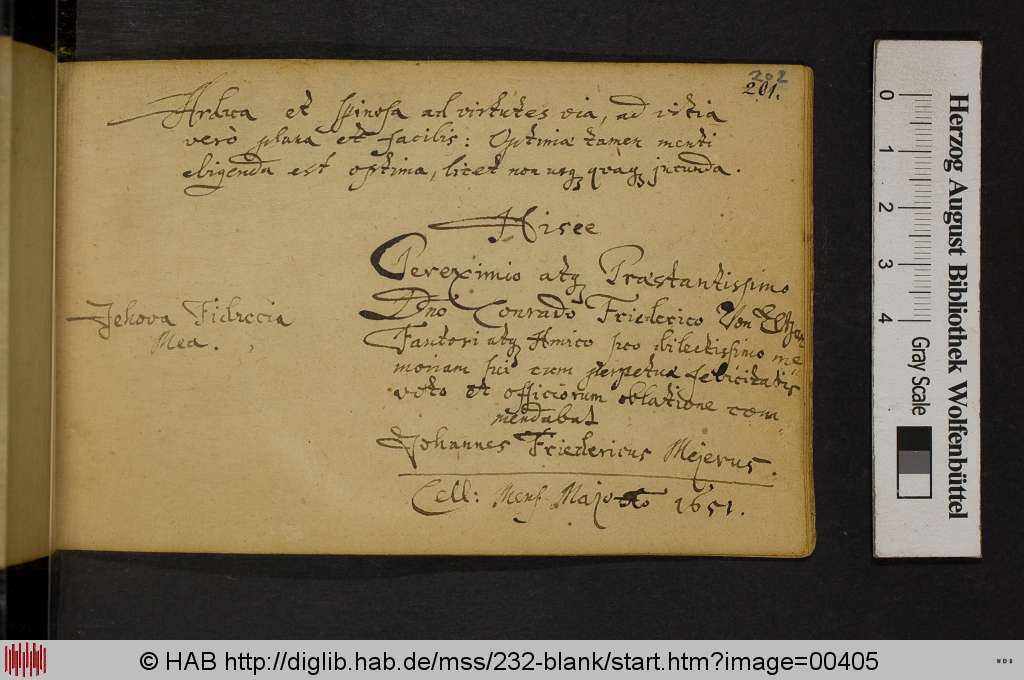 202
201.
Ardua et spinosa ad virtutes via, ad vitia
verò plana et facilis: Optima tamen menti
eligenda est optima, licet non usq3 quaq3 jucunda.
Hisce
Pereximio atq3 Præstantissimo
Dno Conrado Friederico Von
Fautori atq3 Amico suo dilectissimo me
moriam sui cum perpetuæ felicitatis
voto et officiorum oblatione com
mendabat
Johannes Friedericus Mejerus.
Cell: Mens Majo 1651.
Jehova Fiducia
Mea.
Herzog August Bibliothek Wolfenbüttel
0 1 2 3 4
Gray Scale
© HAB http://diglib.hab.de/mss/232-blank/start.htm?image=00405